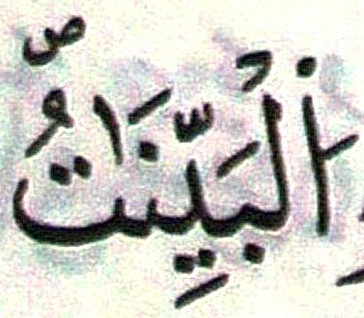 ٱلْبَيِّنَٰتُۖ